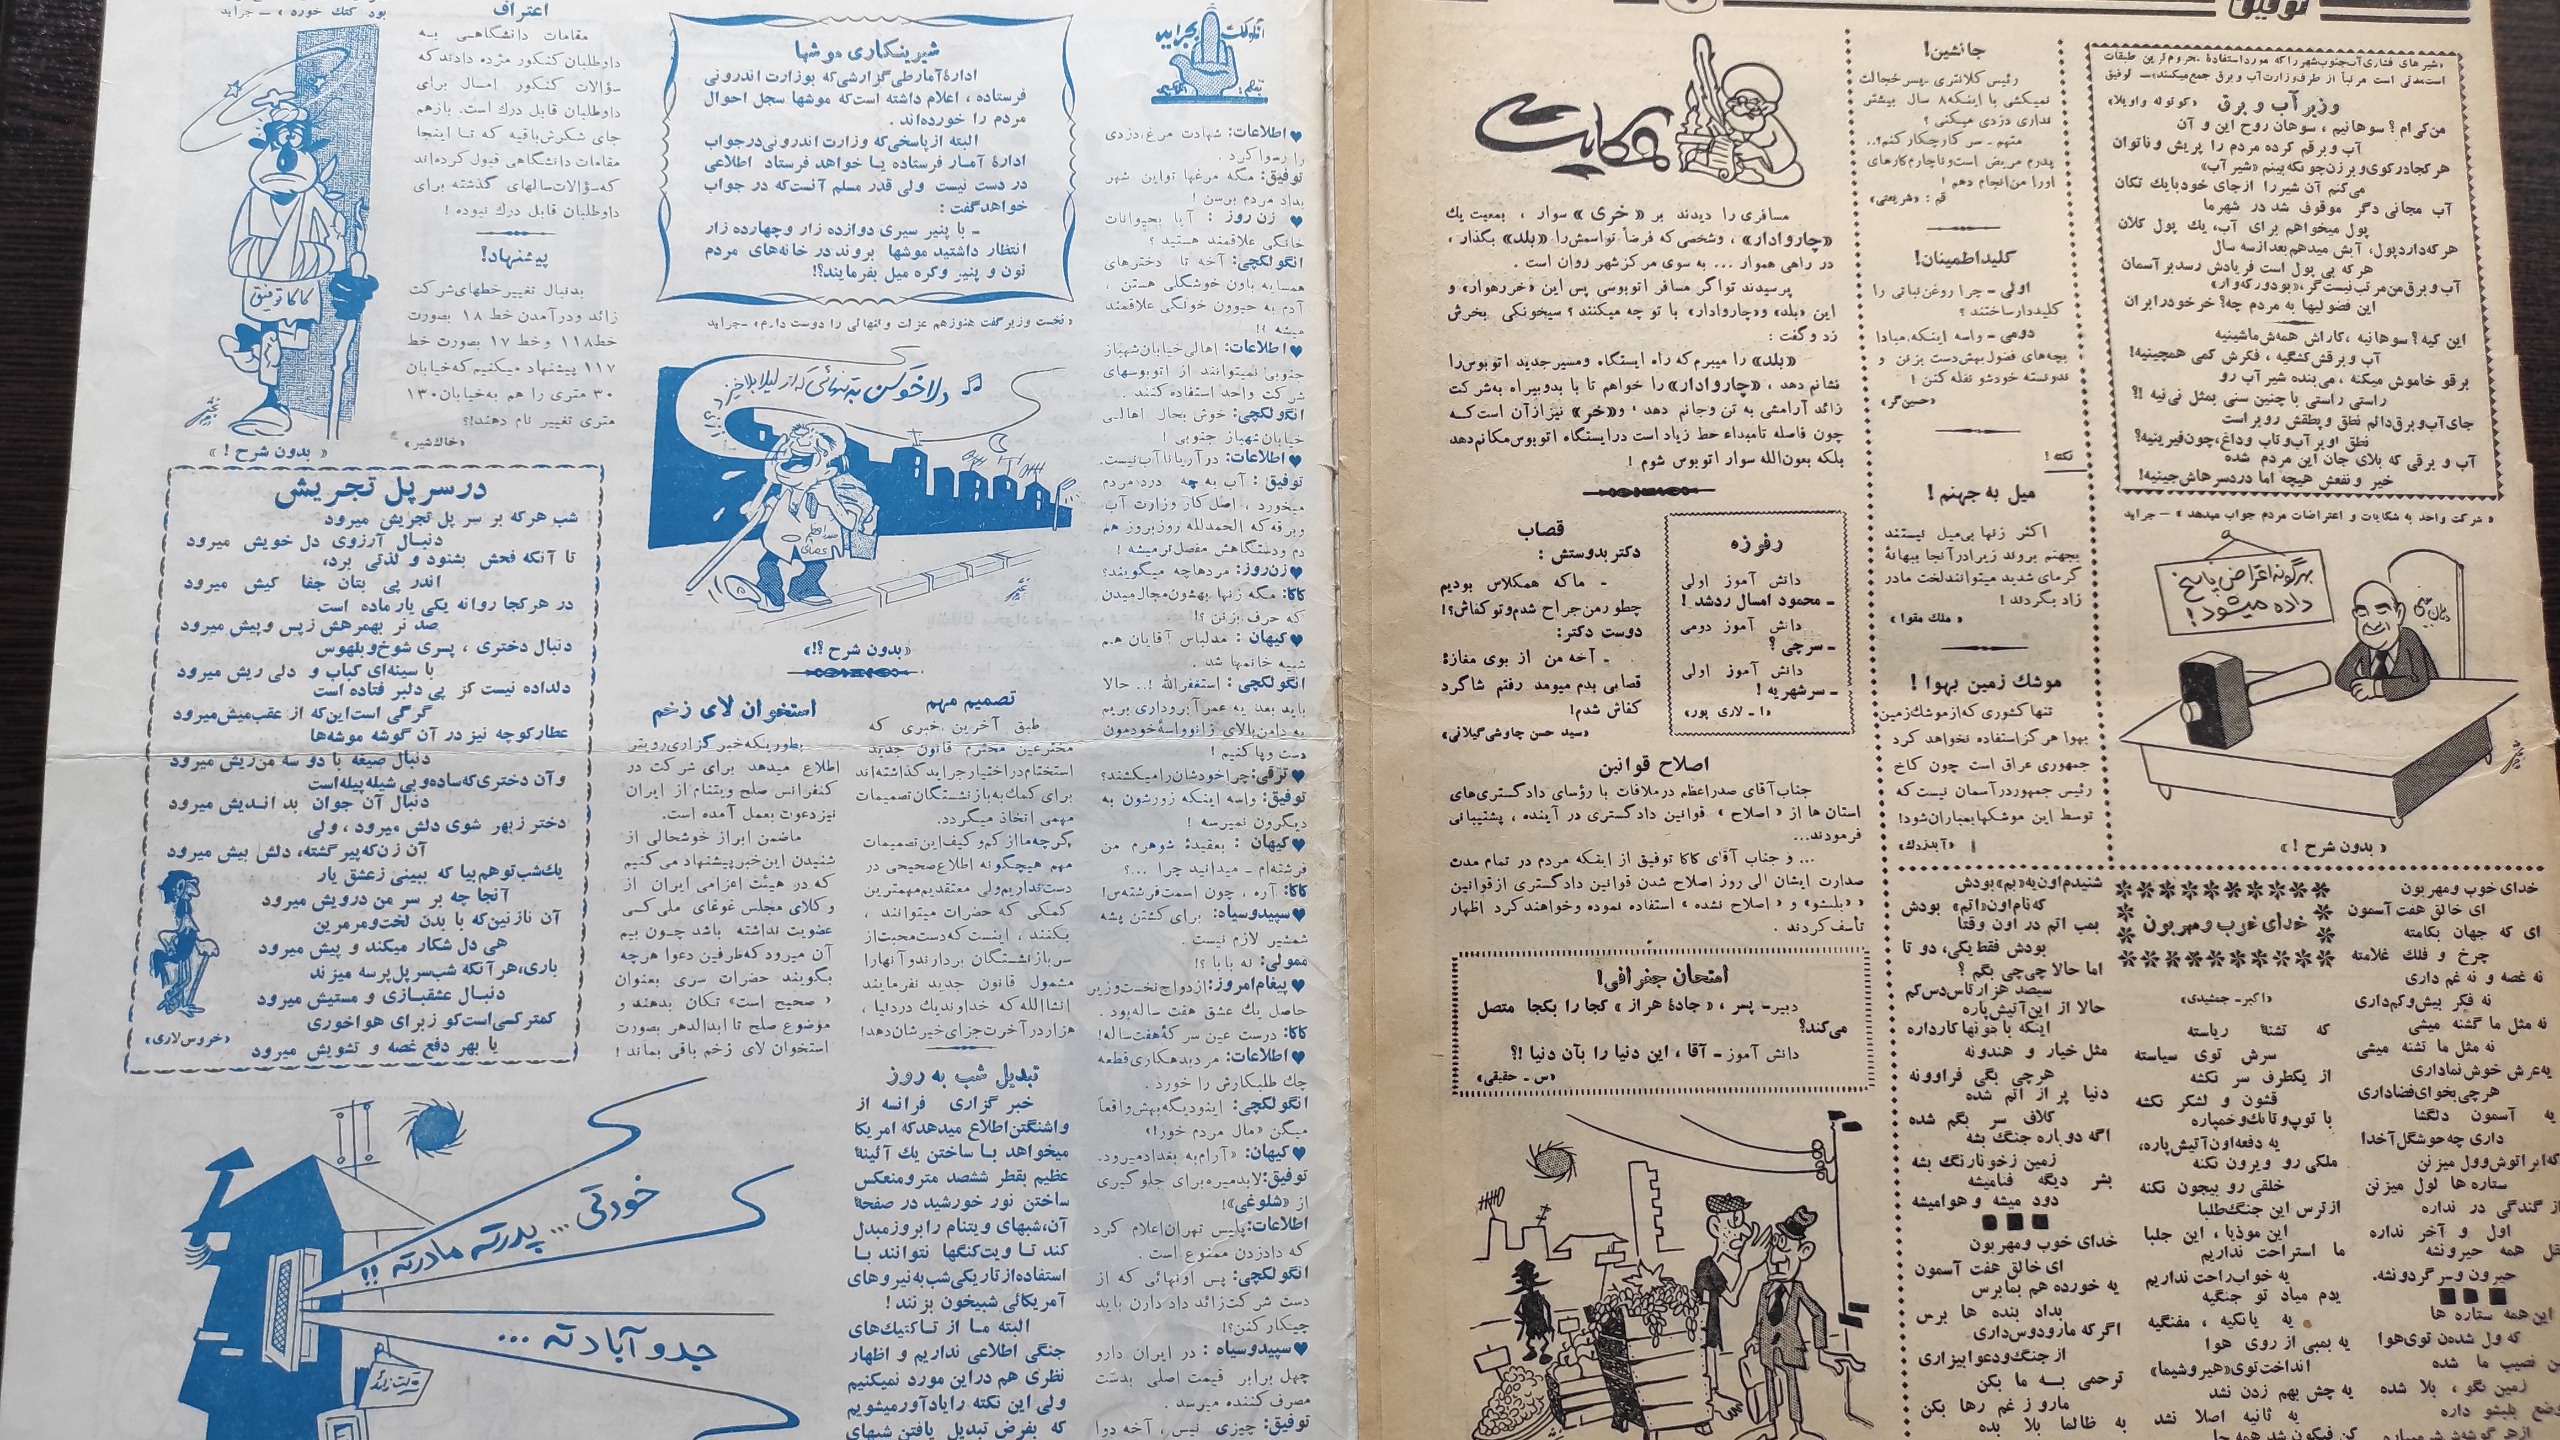 توفیق
«شیرهای فشاری آب جنوب شهر را که مورد استفادهٔ محروم‌ترین طبقات
است مدتی است مرتباً از طرف وزارت آب و برق جمع میکنند» — توفیق
وزیر آب و برق
«کوتوله واویلا»
من کی‌ام؟ سوهانیم، سوهان روح این و آن
آب و برقم کرده مردم را پریش و ناتوان
هر کجا در کوی و برزن چونکه بینم «شیر آب»
می‌کنم آن شیر را از جای خود با یك تکان
آب مجانی دگر موقوف شد در شهر ما
پول میخواهم برای آب، یك پول کلان
هر که دارد پول، آبش میدهم بعد از سه سال
هر که بی پول است فریادش رسد بر آسمان
آب و برق من مرتب نیست گر، «بود ور که وار»
این فضولیها به مردم چه؟ خر خود را بران
این کیه؟ سوهانیه، کاراش همه‌ش ماشینیه
آب و برقش کشگیه، فکرش کمی همچینیه!
برقو خاموش میکنه، می‌بنده شیر آب رو
راستی راستی با چنین سنی بمثل نی‌نیه !؟
جای آب و برق دائم نطق و پطقش روبر است
نطق او پر آب و تاب و داغ، چون فیرینیه؟
آب و برقی که بلای جان این مردم شده
خیر و نفعش هیچه اما دردسرهاش جینیه!
«شرکت واحد به شکایات و اعتراضات مردم جواب میدهد» — جراید
بهر گونه اعتراض پاسخ
داده میشود!
« بدون شرح ! »
جانشین!
رئیس کلانتری ـ پسر خجالت
نمیکشی با اینکه ۸ سال بیشتر
نداری دزدی میکنی ؟
متهم ـ سرکار چکار کنم؟..
پدرم مریض است و ناچارم کارهای
اورا من انجام دهم !
قم : «شریعتی»
کلید اطمینان!
اولی ـ چرا روغن نباتی را
کلیددار ساختند ؟
دومی ـ واسه اینکه مبادا
بچه‌های فضول بهش دست بزنن و
ندونسته خودشو نفله کنن !
«حسین گر»
نکته !
میل به جهنم !
اکثر زنها بی‌میل نیستند
بجهنم بروند زیرا در آنجا ببهانهٔ
گرمای شدید میتوانند لخت مادر
زاد بگردند !
« ملك مقوا »
موشك زمین بهوا !
تنها کشوری که از موشك زمین
بهوا هرگز استفاده نخواهد کرد
جمهوری عراق است چون کاخ
رئیس جمهور در آسمان نیست که
توسط این موشکها بمباران شود!
«آیدزدك»
حکایت
مسافری را دیدند بر «خری» سوار ، بمعیت یك
«چاروادار» ، وشخصی که فرضاً تو اسمش را «بلد» بگذار ،
در راهی هموار ... به سوی مرکز شهر روان است .
پرسیدند تو اگر مسافر اتوبوسی پس این «خر رهوار» و
این «بلد» و «چاروادار» با تو چه میکنند ؟ سیخونکی بخرش
زد و گفت :
«بلد» را میبرم که راه ایستگاه ومسیر جدید اتوبوس را
نشانم دهد ، «چاروادار» را خواهم تا با بدو بیراه به شرکت
زائد آرامشی به تن و جانم دهد ، و «خر» نیز از آن است که
چون فاصله تا مبداء خط زیاد است در ایستگاه اتوبوس مکانم دهد
بلکه بعون‌الله سوار اتوبوس شوم !
رفوزه
دانش آموز اولی
ـ محمود امسال رد شد !
دانش آموز دومی
ـ سر چی ؟
دانش آموز اولی
ـ سر شهریه !
«ا ـ لاری پور»
قصاب
دکتر بدوستش :
ـ ما که همکلاس بودیم
چطور من جراح شدم و تو کفاش؟!
دوست دکتر:
ـ آخه من از بوی مغازهٔ
قصابی بدم میومد رفتم شاگرد
کفاش شدم!
«سید حسن چاوشی گیلانی»
اصلاح قوانین
جناب آقای صدراعظم در ملاقات با رؤسای دادگستری‌های
استان ها از « اصلاح » قوانین دادگستری در آینده ، پشتیبانی
فرمودند...
... و جناب آقای کاکا توفیق از اینکه مردم در تمام مدت
صدارت ایشان الی روز اصلاح شدن قوانین دادگستری از قوانین
«بلبشو» و « اصلاح نشده » استفاده نموده و خواهند کرد اظهار
تأسف کردند .
امتحان جغرافی!
دبیر ـ پسر ، «جادهٔ هراز» کجا را بکجا متصل
می‌کند؟
دانش آموز ـ آقا ، این دنیا را بآن دنیا !؟
«س ـ حقیقی»
خدای خوب و مهربون
«اکبر ـ جمشیدی»
خدای خوب و مهربون
ای خالق هفت آسمون
ای که جهان بکامته
چرخ و فلك غلامته
نه غصه و نه غم داری
نه فکر بیش و کم داری
نه مثل ما گشنه میشی
نه مثل ما تشنه میشی
یه عرش خوش نما داری
هر چی بخوای فضا داری
یه آسمون دلگشا
داری چه خوشگل آخدا
که ابر اتوش وول میزنن
ستاره ها لول میزنن
از گندگی در نداره
اول و آخر نداره
همه حیرونشه
حیرون و سرگردونشه.
این همه ستاره ها
که ول شدن توی هوا
نصیب ما شده
زمین نگو ، بلا شده
وضع بلبشو داره
که تشنهٔ ریاسته
سرش توی سیاسته
از یکطرف سر نکشه
قشون و لشکر نکشه
با توپ و تانك و خمپاره
یه دفعه اون آتیش پاره،
ملکی رو ویرون نکنه
خلقی رو بیجون نکنه
از ترس این جنگ طلبا
این موذیا ، این جلبا
ما استراحت نداریم
یه خواب راحت نداریم
یدم میاد تو جنگیه
یه یانکیه ، مفنگیه
یه بمبی از روی هوا
انداخت توی «هیروشیما»
یه چش بهم زدن نشد
یه ثانیه اصلا نشد
کن فیکون شد همه جا
شنیدم اون یه «بم» بودش
که نام اون «اتم» بودش
بمب اتم در اون وقتا
بودش فقط یکی، دو تا
اما حالا چی‌چی بگم ؟
سیصد هزار تاس دس کم
حالا از این آتیش پاره
اینکه با جونها کار داره
مثل خیار و هندونه
هرچی بگی فراوونه
دنیا پر از اتم شده
کلاف سر بگم شده
اگه دوباره جنگ بشه
زمین ز خونا رنگ بشه
بشر دیگه فنا میشه
دود میشه و هوا میشه
خدای خوب و مهربون
ای خالق هفت آسمون
یه خورده هم بما برس
بداد بنده ها برس
اگر که مارو دوس داری
از جنگ و دعوا بیزاری
ترحمی به ما بکن
مارو ز غم رها بکن
به ظالما بلا بده
انگولك بجراید
♥ اطلاعات: شهادت مرغ، دزدی
را رسوا کرد .
توفیق: مگه مرغها تو این شهر
بداد مردم برسن !
♥ زن روز : آیا بحیوانات
خانگی علاقمند هستید ؟
انگولکچی: آخه تا دخترهای
همسایه باون خوشگلی هستن ،
آدم به حیوون خونگی علاقمند
میشه ؟!
♥ اطلاعات: اهالی خیابان شهباز
جنوبی نمیتوانند از اتوبوسهای
شرکت واحد استفاده کنند .
انگولکچی: خوش بحال اهالی
خیابان شهباز جنوبی !
♥ اطلاعات: در آریانا آب نیست.
توفیق : آب به چه درد مردم
میخورد ، اصل کار وزارت آب
و برقه که الحمدلله روز بروز هم
دم و دستگاهش مفصل تر میشه !
♥ زن روز: مردها چه میگویند؟
کاکا: مگه زنها بهشون مجال میدن
که حرف بزنن ؟!
♥ کیهان : مد لباس آقایان هم
شبیه خانمها شد .
انگولکچی : استغفرالله !.. حالا
باید بعد یه عمر آبروداری بریم
یه دامن بالای زانو واسهٔ خودمون
دست و پا کنیم !
♥ ترقی: چرا خودشان را میکشند؟
توفیق: واسه اینکه زورشون به
دیگرون نمیرسه !
♥ کیهان : بعقیدهٔ شوهرم من
فرشته‌ام ـ میدانید چرا ...؟
کاکا: آره ، چون اسمت فرشته‌س!
♥ سپید و سیاه: برای کشتن پشه
شمشیر لازم نیست .
ممولی: نه بابا ؟!
♥ پیغام امروز: ازدواج نخست وزیر
حاصل یك عشق هفت ساله بود .
کاکا: درست عین سرکهٔ هفت ساله!
♥ اطلاعات: مرد بدهکاری قطعه
چك طلبکارش را خورد .
انگولکچی: اینو دیگه بهش واقعاً
میگن «مال مردم خور!»
♥ کیهان: «آرام به بغداد میرود.
توفیق: لابد میره برای جلوگیری
از «شلوغی»!
اطلاعات: پلیس تهران اعلام کرد
که داد زدن ممنوع است .
انگولکچی: پس اونهائی که از
دست شرکت زائد داد دارن باید
چیکار کنن؟!
♥ سپید و سیاه : در ایران دارو
چهل برابر قیمت اصلی بدست
مصرف کننده میرسد .
توفیق: چیزی نیس ، آخه دوا
شیرینکاری موشها
ادارهٔ آمار طی گزارشی که بوزارت اندرونی
فرستاده ، اعلام داشته است که موشها سجل احوال
مردم را خورده‌اند .
البته از پاسخی که وزارت اندرونی در جواب
ادارهٔ آمار فرستاده یا خواهد فرستاد اطلاعی
در دست نیست ولی قدر مسلم آنست که در جواب
خواهد گفت :
ـ با پنیر سیری دوازده زار و چهارده زار
انتظار داشتید موشها بروند در خانه‌های مردم
نون و پنیر و کره میل بفرمایند؟!
«نخست وزیر گفت هنوز هم عزلت و تنهائی را دوست دارم» ـ جراید
دلا خو کن به تنهائی که از تنها بلا خیزد
صدراعظم
عصائی
«بدون شرح ؟!»
تصمیم مهم
طبق آخرین خبری که
مخترعین محترم قانون جدید
استخدام در اختیار جراید گذاشته‌اند
برای کمك به بازنشستگان تصمیمات
مهمی اتخاذ میگردد.
گرچه ما از کم و کیف این تصمیمات
مهم هیچگونه اطلاع صحیحی در
دست نداریم ولی معتقدیم مهمترین
کمکی که حضرات میتوانند ،
بکنند ، اینست که دست محبت از
سر بازنشستگان بردارند و آنها را
مشمول قانون جدید نفرمایند
انشاالله که خداوند یك در دنیا ،
هزار در آخرت جزای خیرشان دهد!
تبدیل شب به روز
خبرگزاری فرانسه از
واشنگتن اطلاع میدهد که امریکا
میخواهد با ساختن یك آئینهٔ
عظیم بقطر ششصد متر و منعکس
ساختن نور خورشید در صفحهٔ
آن، شبهای ویتنام را بروز مبدل
کند تا ویت‌کنگها نتوانند با
استفاده از تاریکی شب به نیروهای
آمریکائی شبیخون بزنند !
البته ما از تاکتیك‌های
جنگی اطلاعی نداریم و اظهار
نظری هم در این مورد نمیکنیم
ولی این نکته را یادآور میشویم
که بفرض تبدیل یافتن شبهای
استخوان لای زخم
بطوریکه خبرگزاری رویتر
اطلاع میدهد برای شرکت در
کنفرانس صلح ویتنام از ایران
نیز دعوت بعمل آمده است.
ما ضمن ابراز خوشحالی از
شنیدن این خبر پیشنهاد می کنیم
که در هیئت اعزامی ایران از
وکلای مجلس غوغای ملی کسی
عضویت نداشته باشد چون بیم
آن میرود که طرفین دعوا هر چه
بگویند حضرات سری بعنوان
« صحیح است » تکان بدهند و
موضوع صلح تا ابدالدهر بصورت
استخوان لای زخم باقی بماند !
اعتراف
مقامات دانشگاهی به
داوطلبان کنکور مژده دادند که
سؤالات کنکور امسال برای
داوطلبان قابل درك است. باز هم
جای شکرش باقیه که تا اینجا
مقامات دانشگاهی قبول کرده‌اند
که سؤالات سالهای گذشته برای
داوطلبان قابل درك نبوده !
پیشنهاد!
بدنبال تغییر خطهای شرکت
زائد و در آمدن خط ۱۸ بصورت
خط ۱۱۸ و خط ۱۷ بصورت خط
۱۱۷ پیشنهاد میکنیم که خیابان
۳۰ متری را هم به خیابان ۱۳۰
متری تغییر نام دهند!؟
«خاك شیر»
بود کتك خورد » ـ جراید
کاکا توفیق
« بدون شرح ! »
در سر پل تجریش
شب هر که بر سر پل تجریش میرود
دنبال آرزوی دل خویش میرود
تا آنکه فحش بشنود و لذتی برد،
اندر پی بتان جفا کیش میرود
در هر کجا روانه یکی یار ماده است
صد نر بهمرهش ز پس و پیش میرود
دنبال دختری ، پسری شوخ و بلهوس
با سینه‌ای کباب و دلی ریش میرود
دلداده نیست کز پی دلبر فتاده است
گرگی است این که از عقب میش میرود
عطار کوچه نیز در آن گوشه موشه‌ها
دنبال صیغه با دو سه من ریش میرود
و آن دختری که ساده و بی شیله پیله است
دنبال آن جوان بداندیش میرود
دختر ز بهر شوی دلش میرود ، ولی
آن زن که پیر گشته، دلش بیش میرود
یك شب تو هم بیا که ببینی ز عشق یار
آنجا چه بر سر من درویش میرود
آن نازنین که با بدن لخت و مرمرین
هی دل شکار میکند و پیش میرود
باری، هر آنکه شب سر پل پرسه میزند
دنبال عشقبازی و مستیش میرود
کمتر کسی است کو ز برای هواخوری
یا بهر دفع غصه و تشویش میرود
«خروس لاری»
خودتی ... پدرته مادرته !!
جد و آبادته ...